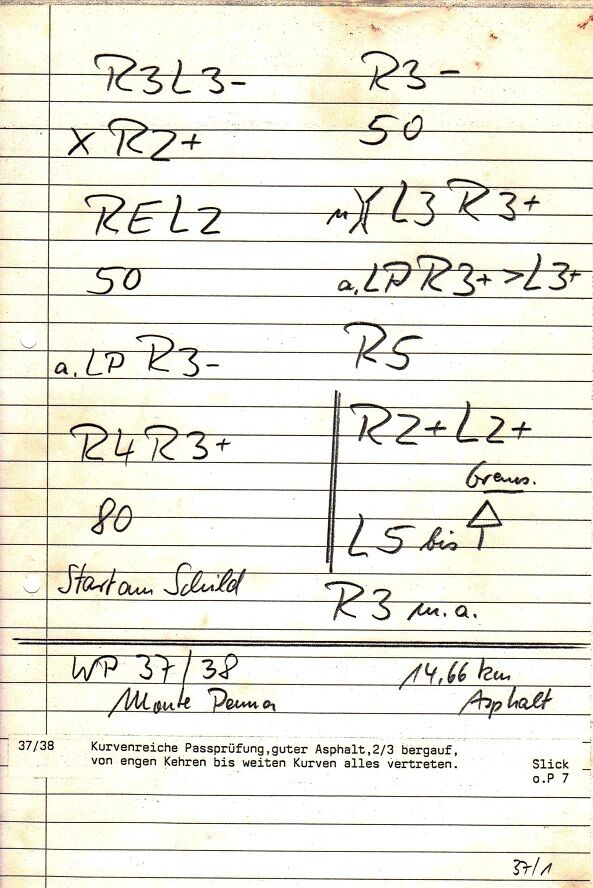 R3L3-
x R2+
RE L2
50
a. LP R3-
R4 R3+
80
Start am Schild
R3-
50
)( L3 R3+
a. LP R3+ >L3+
R5
R2+ L2+
L5 bis
R3 m.a.
WP 37/38
14,66 km
Monte Penna
Asphalt
37/38
Kurvenreiche Passprüfung,guter Asphalt,2/3 bergauf,
von engen Kehren bis weiten Kurven alles vertreten.
Slick
o.P 7
37/1